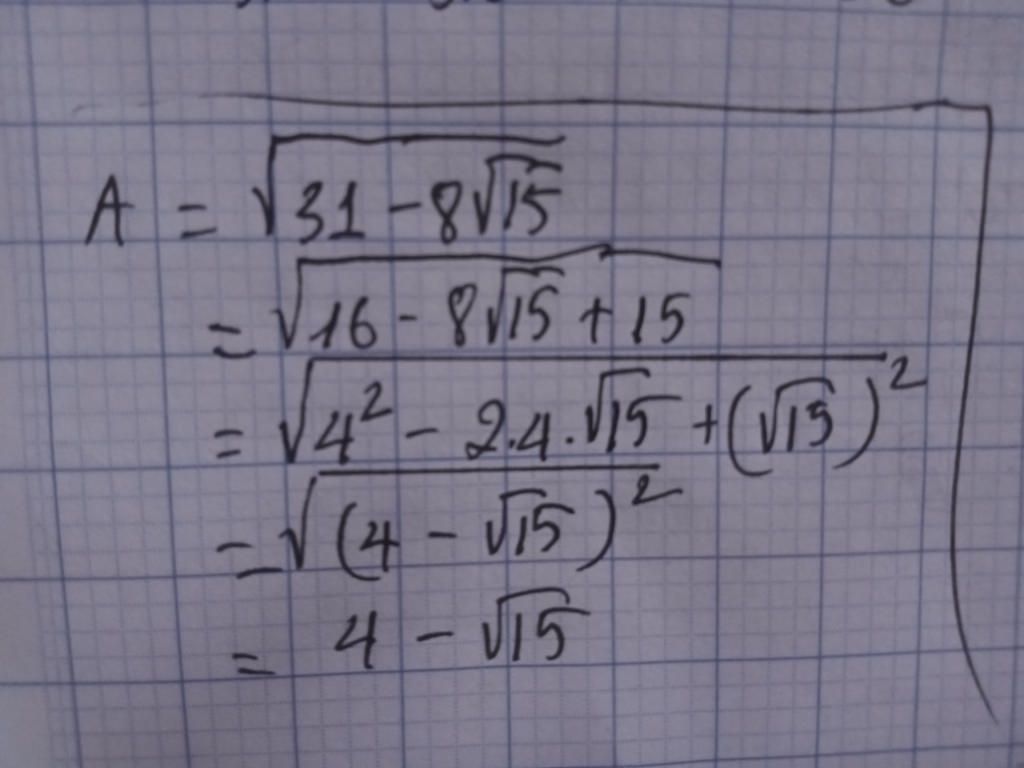 A = √(31 - 8√15)
= √(16 - 8√15 + 15)
= √(4² - 2.4.√15 + (√15)²)
= √((4 - √15)²)
= 4 - √15